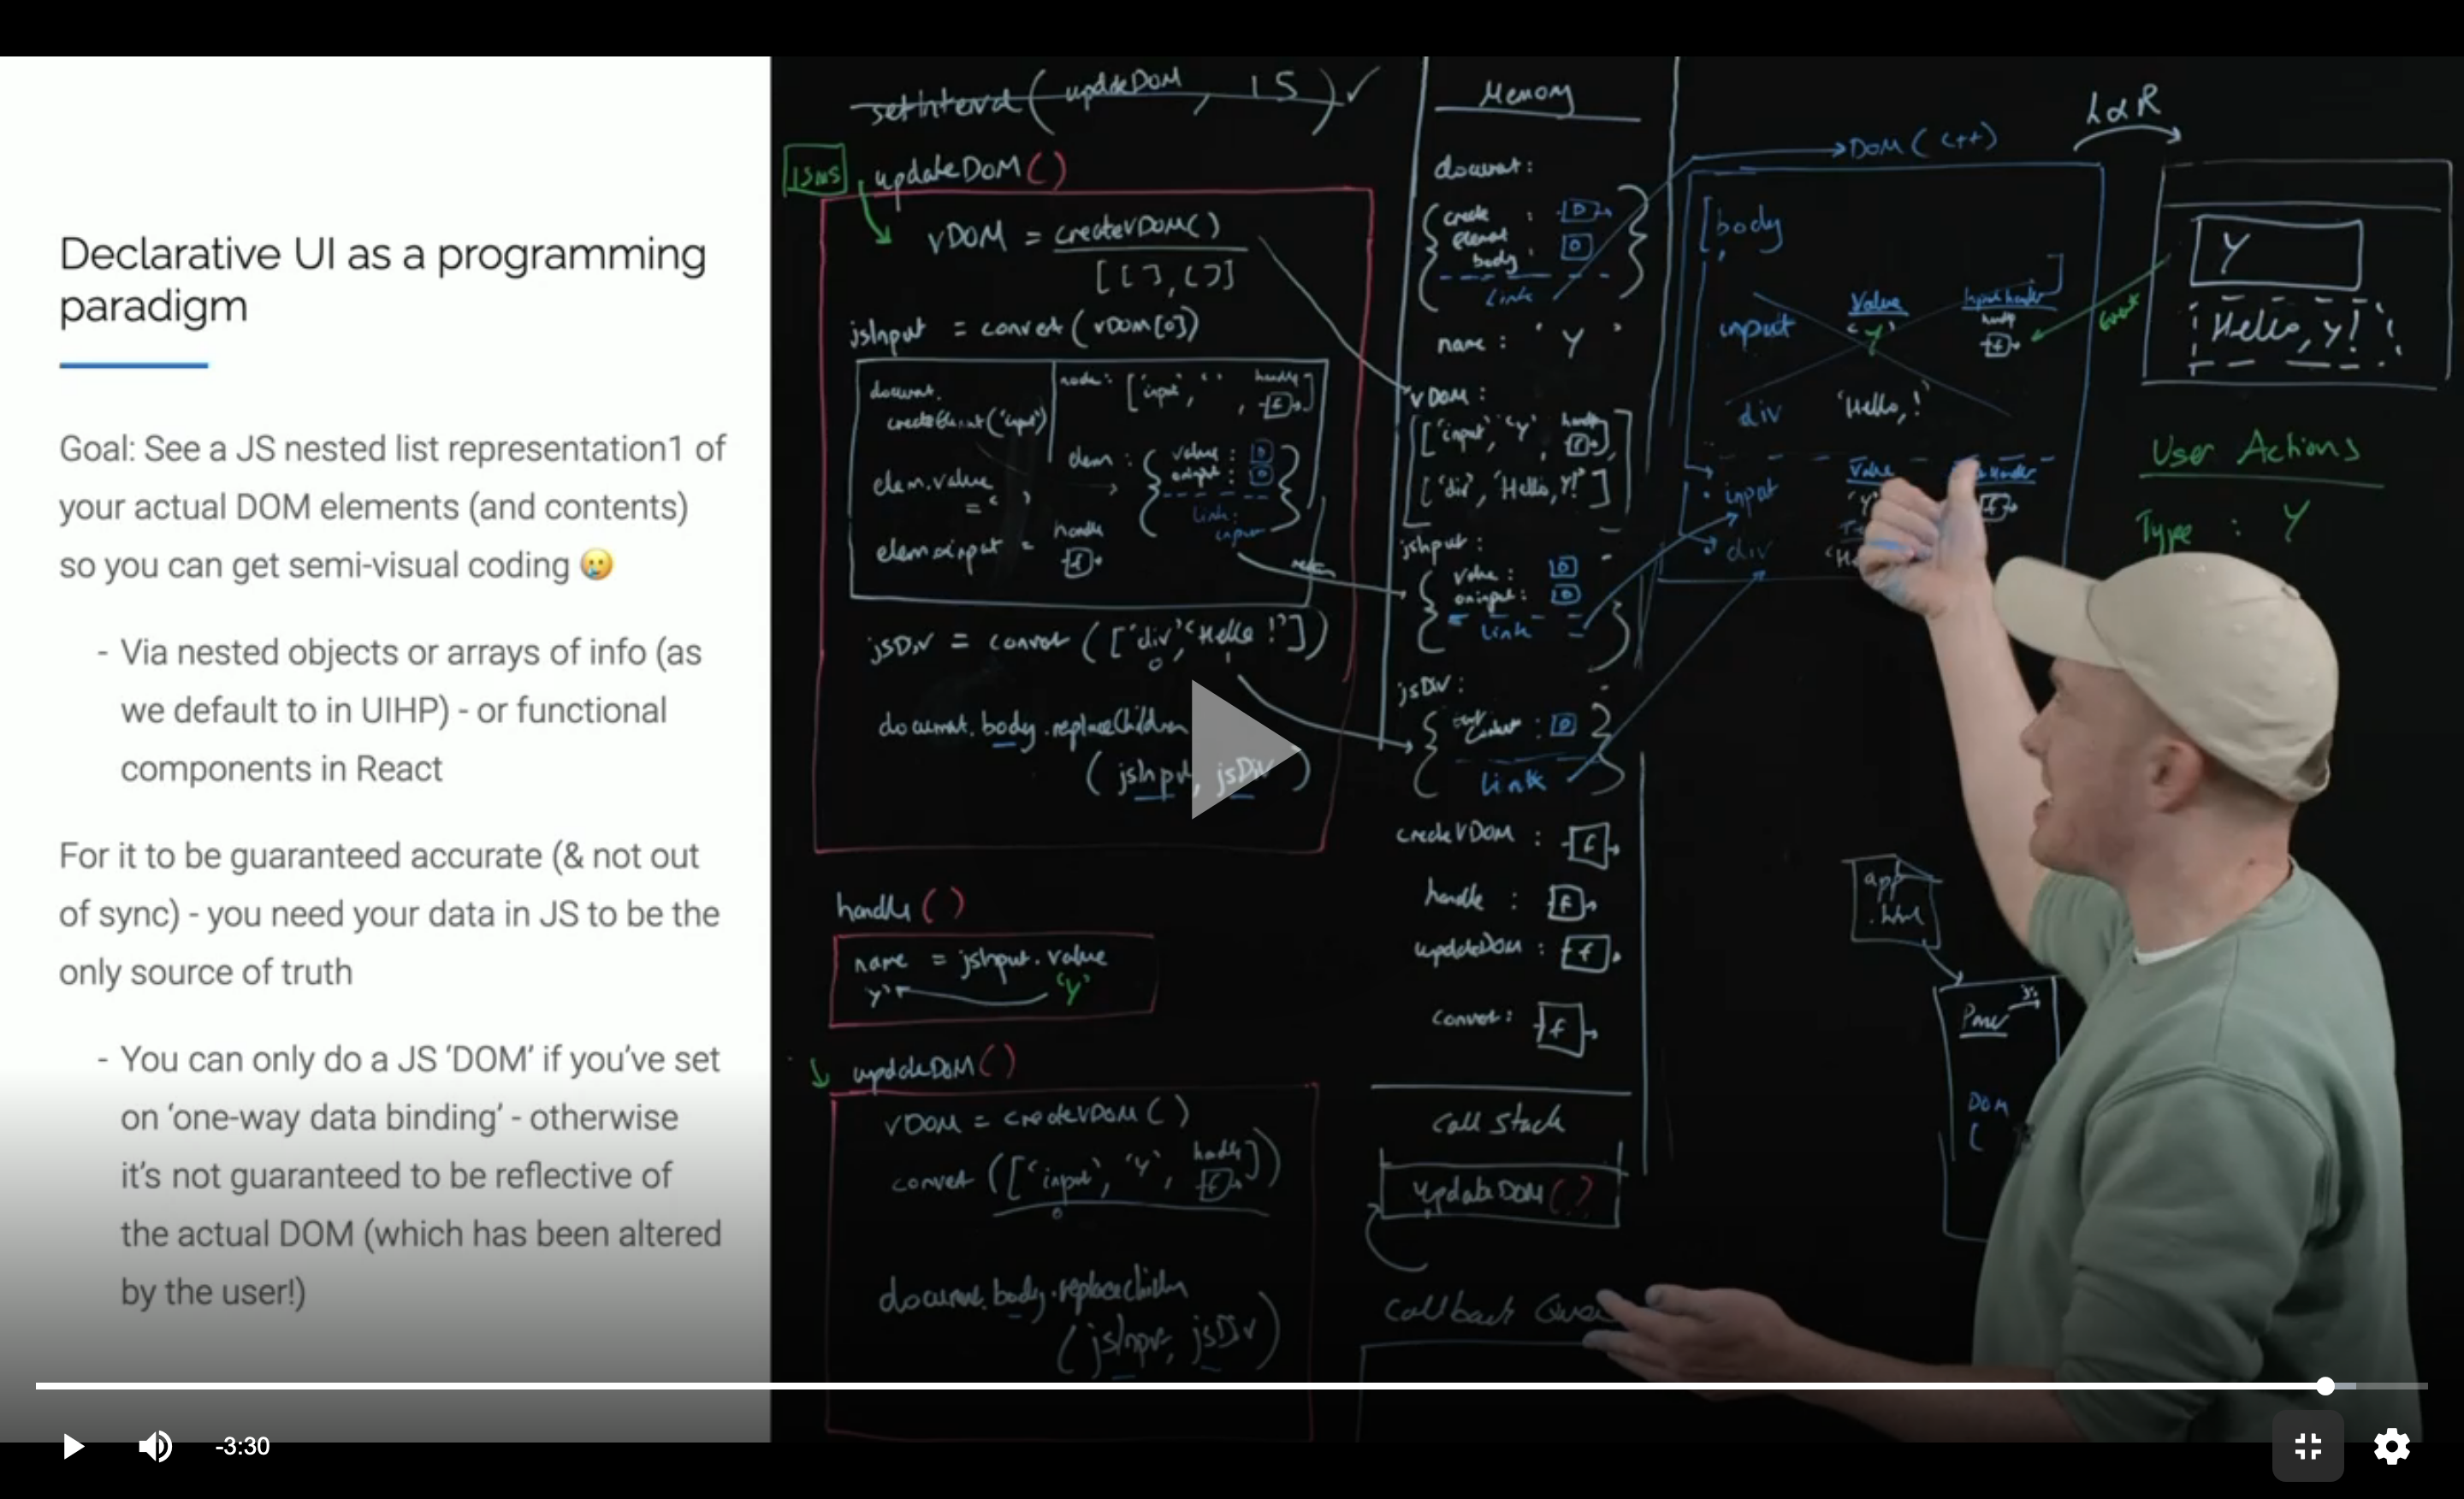 Declarative UI as a programming
paradigm
Goal: See a JS nested list representation1 of
your actual DOM elements (and contents)
so you can get semi-visual coding 🥲
- Via nested objects or arrays of info (as
we default to in UIHP) - or functional
components in React
For it to be guaranteed accurate (& not out
of sync) - you need your data in JS to be the
only source of truth
- You can only do a JS ‘DOM’ if you’ve set
on ‘one-way data binding’ - otherwise
it’s not guaranteed to be reflective of
the actual DOM (which has been altered
by the user!)
setInterval(updateDOM, 15) ✓
15ms
updateDOM()
vDOM = createVDOM()
[[],[]]
jsInput = convert(vDOM[0])
document.
createElement('input')
elem.value
= ' '
elem.oninput = handle
f
node: ['input', ' ', handle
f]
elem: { value:
oninput:
link:
input }
return
jsDiv = convert(['div','Hello !'])
document.body.replaceChildren
(jsInput, jsDiv)
handle()
name = jsInput.value
Y' 'Y'
updateDOM()
vDOM = createVDOM()
convert(['input', 'Y', handle
f])
document.body.replaceChildren
(jsInput, jsDiv)
Memory
document:
{ create
element
body: }
link
name: 'Y'
vDOM:
[['input', 'Y', handle
f],
['div', 'Hello, Y!']]
jsInput:
{ value:
oninput:
link }
jsDiv:
{ text
content: }
link
createVDOM: f
handle: f
updateDOM: f
convert: f
Call Stack
updateDOM()
Callback
DOM (C++)
[body
,
input
Value
'Y'
handle
f
]
div 'Hello, !'
input
Value
'Y'
f
div
L&R
Y
Hello, Y!
Event
User Actions
Type: Y
app
.html
DOM
[
-3:30